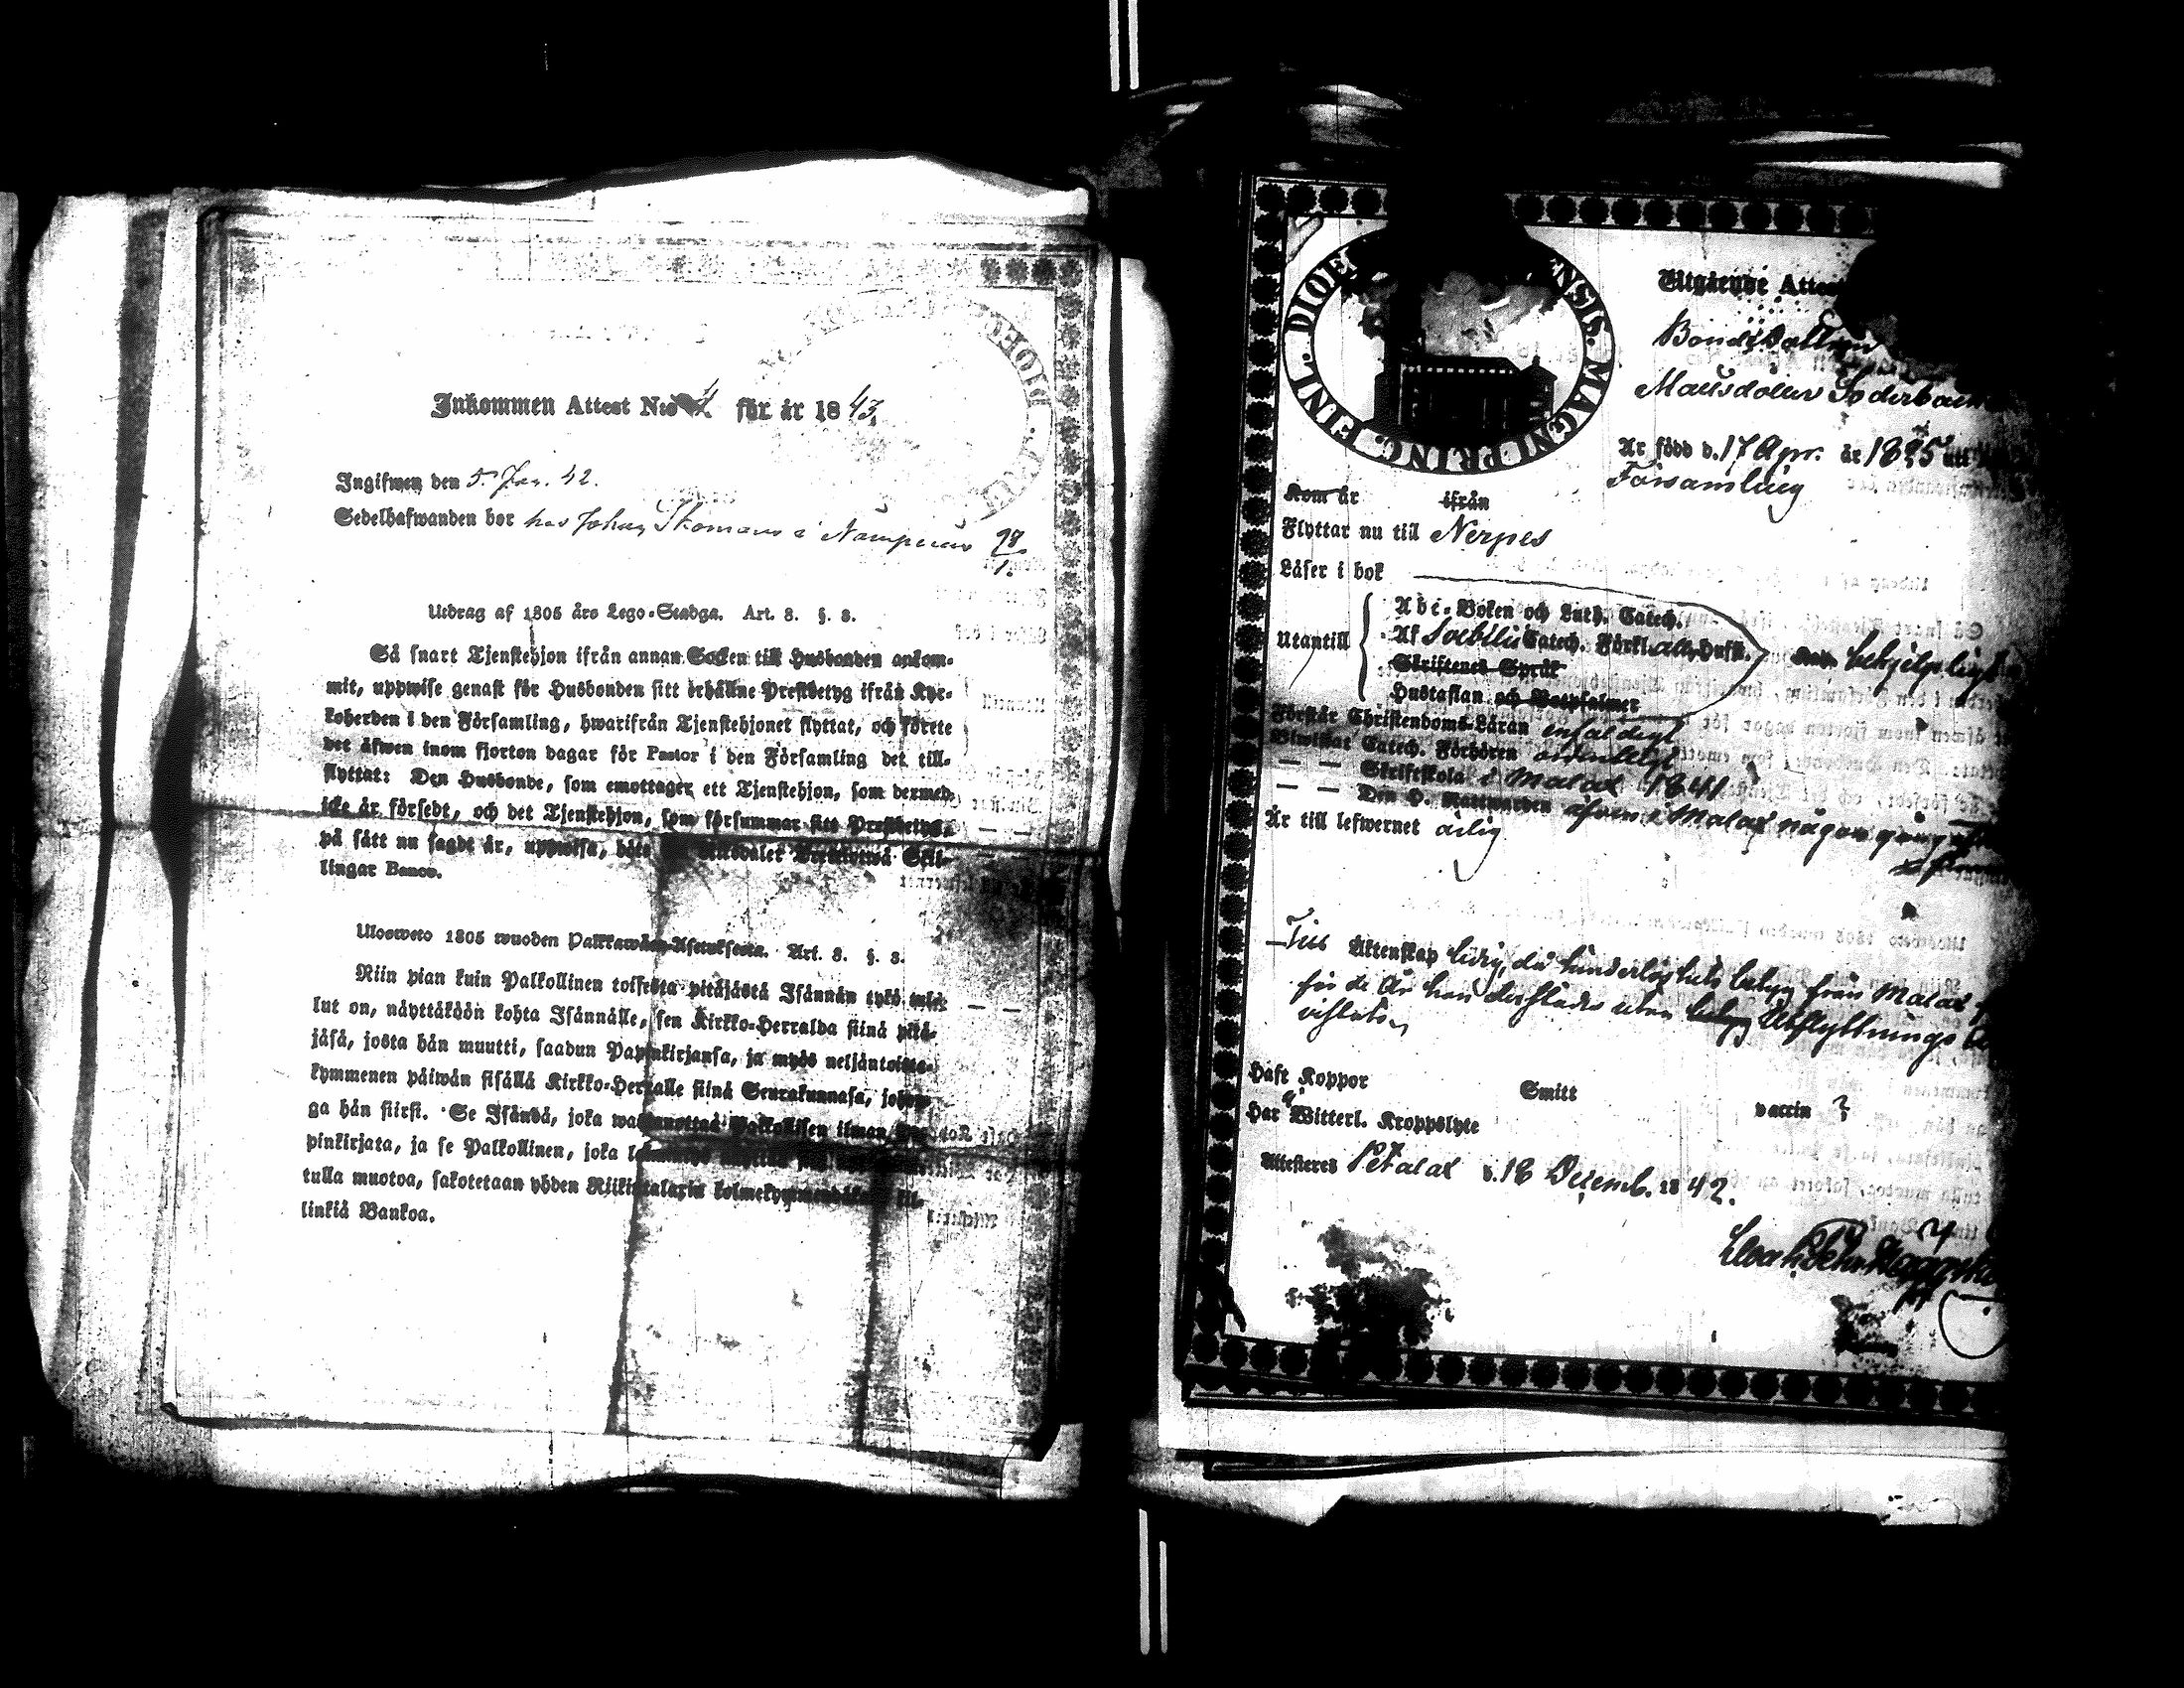 Inkommen Attest N:o 4 för år 1843.
Ingifwen den 5 Jan. 42.
Sedelhafwanden bor hos Johan Skomars i Nämpnäs 98/1.
Utdrag af 1805 års Lego-Stadga. Art. 8. §. 8.
Så snart Tjenstehjon ifrån annan Socken till Husbonden ankom-
mit, uppwise genast för Husbonden sitt erhållne Prestbetyg ifrån Kyr-
koherden i den Församling, hwarifrån Tjenstehjonet flyttat, och förete
det äfwen inom fjorton dagar för Pastor i den Församling det till-
flyttat: Den Husbonde, som emottager ett Tjenstehjon, som dermed
icke är försedt, och det Tjenstehjon, som försummar sitt Prestbetyg,
på sätt nu sagdt är, uppwisa, böte Riksdaler Trettiotwå Skil-
lingar Banco.
Ulosweto 1805 wuoden Palkkawäen-Asetuksesta. Art. 8. §. 8.
Niin pian kuin Palkollinen toisesta pitäjästä Isännän tykö tul-
lut on, näyttäköön kohta Isännälle, sen Kirkko-Herralda siinä pitä-
jäsä, josta hän muutti, saadun Papinkirjansa, ja myös neljäntoista-
kymmenen päiwän sisällä Kirkko-Herralle siinä Seurakunnasa, johon-
ga hän siirsi. Se Isändä, joka wastaanottaa Palkollisen ilman
pinkirjata, ja se Palkollinen, joka
tulla muotoa, sakotetaan yhden Riikintalarin kolmekymmendäkaxi kil-
linkiä Bankoa.
DIOE ENSIS. MAGNI PRINC. FINL.
Utgående Attest
Bondedottren
Söderback
Är född d. 17 Apr. år 1825 uti
Församling
Kom år ifrån
Flyttar nu till Nerpes
Läser i bok
Abc-Boken och Luth. Catech.
Utantill Af Soebelii Catech. Förkl. Husft. behjelpligt
Skriftenes Språk
Hustaflan och Botpsalmer
Förstår Christendoms-Läran enfaldigt
Biwistat Catech. Förhören ordentligt
— — Skriftskola i Malax 1841
— — Den H. Nattwarden äfven i Malax någon gång
Är till lefwernet ärlig
Till Äktenskap ledig, då hinderlöshets betyg från Malax
för de år hon derstädes utan betyg Utflyttnings
vistats
Haft Koppor Smitt vaccin ?
Har Witterl. Kroppslyte
Attesteras Petalax d. 18 Decemb. 1842.